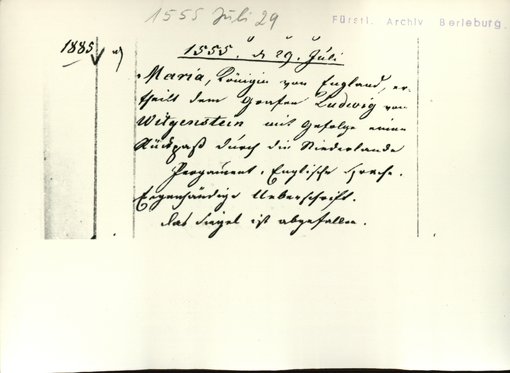 1555 Juli 29
Fürstl. Archiv Berleburg.
1885 a)
1555. d 29. Juli
Maria, Königin von England, er-
theilt dem Grafen Ludwig von
Witgenstein mit Gefolge einen
Rückpaß durch die Niederlande
Pergament. Englische Sprache.
Eigenhändige Ueberschrift.
Das Siegel ist abgefallen.